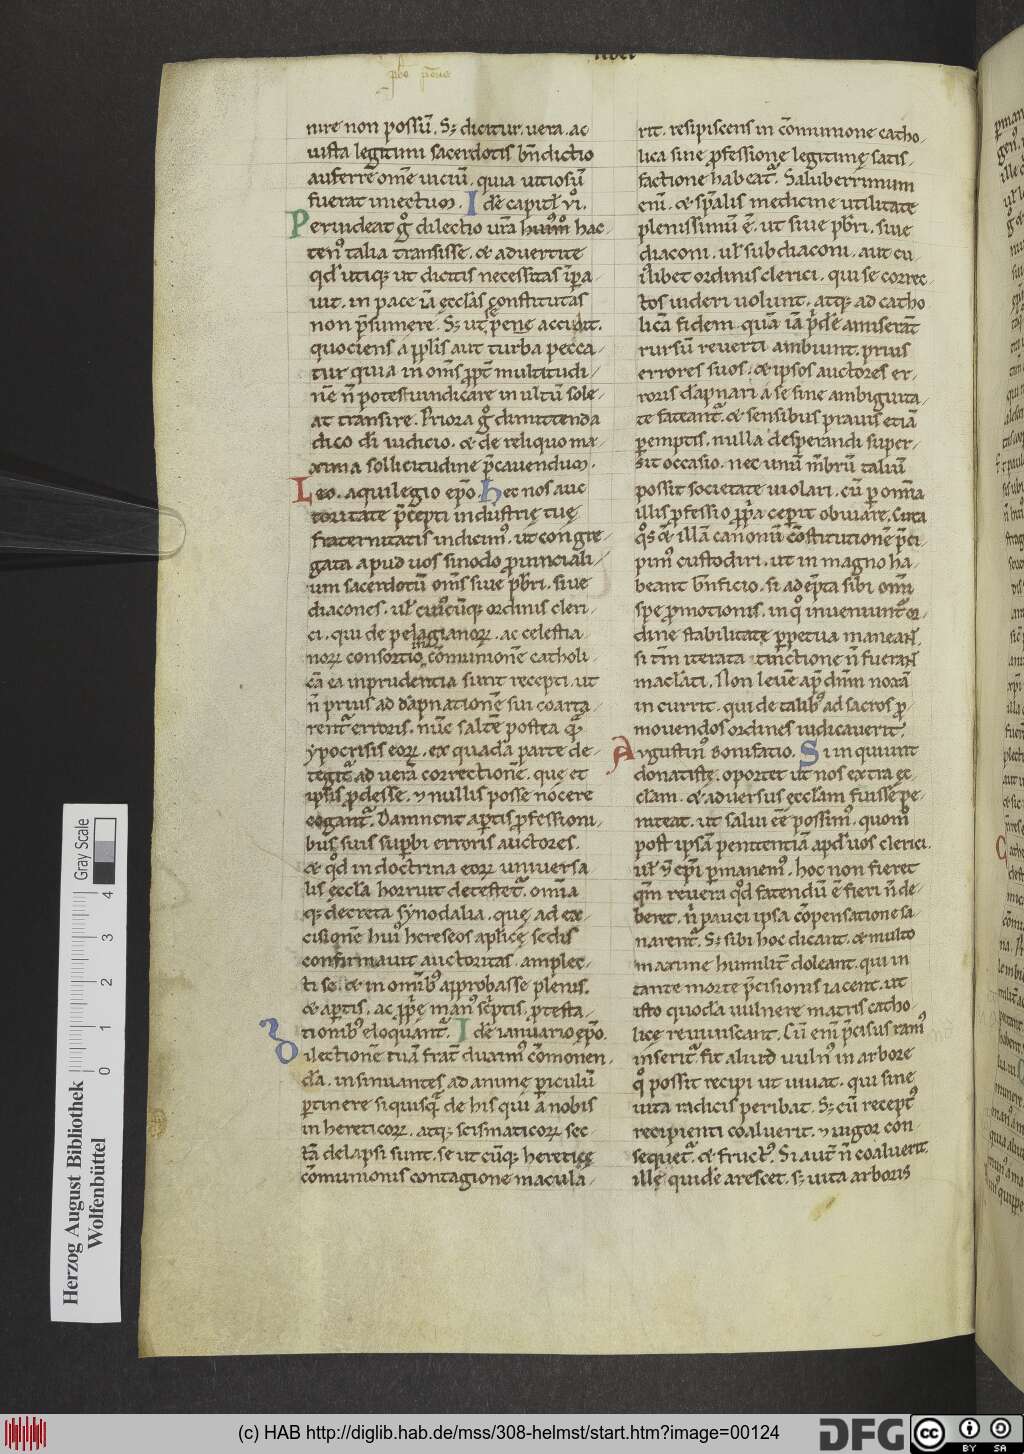 liber
nire non possū. Sꝫ dicitur. uera. ac
iusta legitimi sacerdotis bn̄dictio
auferre om̄e uiciū. quia uitiosū
fuerat iniectum. Idē capitl̄ vi.
Peruideat gͦ dilectio ur̄a hac
ten᷒ talia transisse. & aduertite
qd̄ utiqꝫ ut dicitis necessitas īpa
uit. in pace iā ęccl̄as constitutas
non p̄sumere. Sꝫ ut sępene accidit.
quociens a ppl̄is aut turba pecca
tur quia in om̄s ꝓpt̄ multitudi
nē n̄ potest uindicare inultū sole
at transire. Priora gͦ dimittenda
dico dī iudicio. & de reliquo ma
xima sollicitudine p̄cauendum.
Leo. aquilegio ep̄o. Hec nos auc
toritate p̄cepti industrię tuę
fraternitatis indicim᷒. ut congre
gata apud uos sinodo ꝓuinciali
um sacerdotū om̄s siue pb̄ri. siue
diacones. ul̄ cui᷒cūqꝫ ordinis cleri
ci. qui de pelagianorꝝ. ac celestia
norꝝ consortio cōmunionē catholi
cā ea inprudentia sunt recepti. ut
n̄ prius ad dāpnationē sui coarta
rent᷑ erroris. nūc saltē postea q̄
ypocrisis eorꝝ. ex quadā parte de
tegit᷑ ad uerā correctionē. que et
ipsis ꝓdesse. ⁊ nullis posse nocere
cogant᷑. Damnent aptis ꝓfessioni
bus suis supbi erroris auctores.
& qd̄ in doctrina eorꝝ uniuersa
lis ęccl̄a horruit detestet᷑. om̄ia
qꝫ decreta synodalia. quę ad ex
cisionē hui᷒ hereseos aplicę sedis
confirmauit auctoritas. amplec
ti se. & in om̄ib᷒ approbasse plenis.
& aptis. ac ꝓprę man᷒ sc̄ptis. ꝓtesta
tionib᷒ eloquant᷑. Idē ianuario ep̄o.
Dilectionē tuā frat̄ duxim᷒ cōmonen
dā. insinuantes ad animę piculū
ptinere si quisq̄ de his qui a nobis
in hereticorꝝ. atqꝫ scismaticorꝝ sec
tā delapsi sunt. se ut cūqꝫ heretice
cōmunionis contagione macula
rit. resipiscens in cōmunione catho
lica sine ꝓfessione legitimę satis
factione habeat᷑. Saluberrimum
eni. & spālis medicine utilitate
plenissimū ē. ut siue pb̄ri. siue
diaconi. ul̄ subdiaconi. aut cu
iuslibet ordinis clerici. qui se correc
tos uideri uolunt. atqꝫ ad catho
licā fidem quā iā p̄dē amiserāt
rursū reuerti ambiunt. prius
errores suos. & ipsos auctores er
roris dāpnari a se sine ambiguita
te fateant᷑. & sensibus prauis etiā
pemptis. nulla desperandi super
sit occasio. nec unū mb̄rū taliū
possit societate uiolari. cū p om̄ia
illis ꝓfessio ꝓpa ceperit obuiare. Circa
qͦs & illā canonū cōstitutionē p̄ci
pim᷒ custodiri. ut in magno ha
beant bn̄ficio. si adēpta sibi om̄i
spe ꝓmotionis. in qͦ inueniunt᷑ or
dine stabilitate ppetua maneant.
si tm̄ iterata tinctione n̄ fuerant
maculati. Non leuē ap̄ dn̄m noxā
incurrit. qui de talib᷒ ad sacros ꝓ
mouendos ordines iudicauerit.
Augustin᷒ bonifatio. Si inquiunt
donatiste. oportet ut nos extra ęc
cl̄am. & aduersus ęccl̄am fuisse pe
niteat. ut salui eē possim᷒. quom̄
post ipsā penitentiā apd̄ uos clerici.
ul̄ ⁊ ep̄i pmanem᷒. hoc non fieret
qm̄ reuera qd̄ fatendū ē fieri n̄ de
beret. n̄ pauci ipsa cōpensatione sa
narent᷑. Sꝫ sibi hoc dicant. & multo
maxime humilit̄ doleant. qui in
tante morte p̄cisionis iacent. ut
isto quodā uulnere matris catho
lice reuiuiscant. Cū enī p̄cisus ram᷒
inserit᷑. fit aliud uuln᷒ in arbore
qͦ possit recipi ut uiuat. qui sine
uita radicis peribat. Sꝫ cū recept᷒
recipienti coaluerit. ⁊ uigor con
sequet᷑. & fruct᷒. Si aut̄ n̄ coaluerit.
ille quidē arescet. sꝫ uita arboris
Herzog August Bibliothek
Wolfenbüttel
Gray Scale
0 1 2 3 4
(c) HAB http://diglib.hab.de/mss/308-helmst/start.htm?image=00124
DFG
cc
BY SA